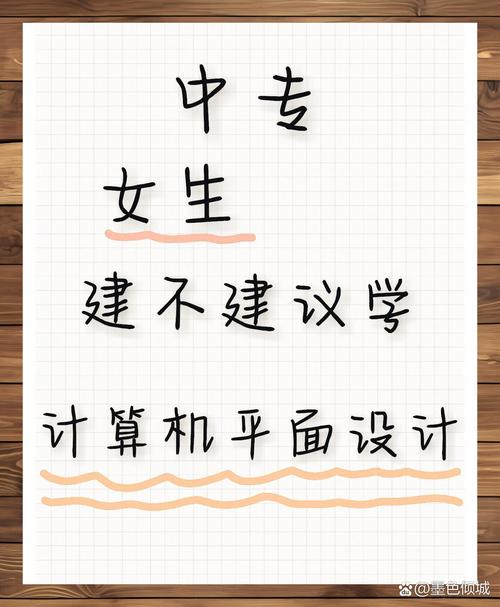 中专
女生
建不建议学
计算机平面设计
@墨色倾城